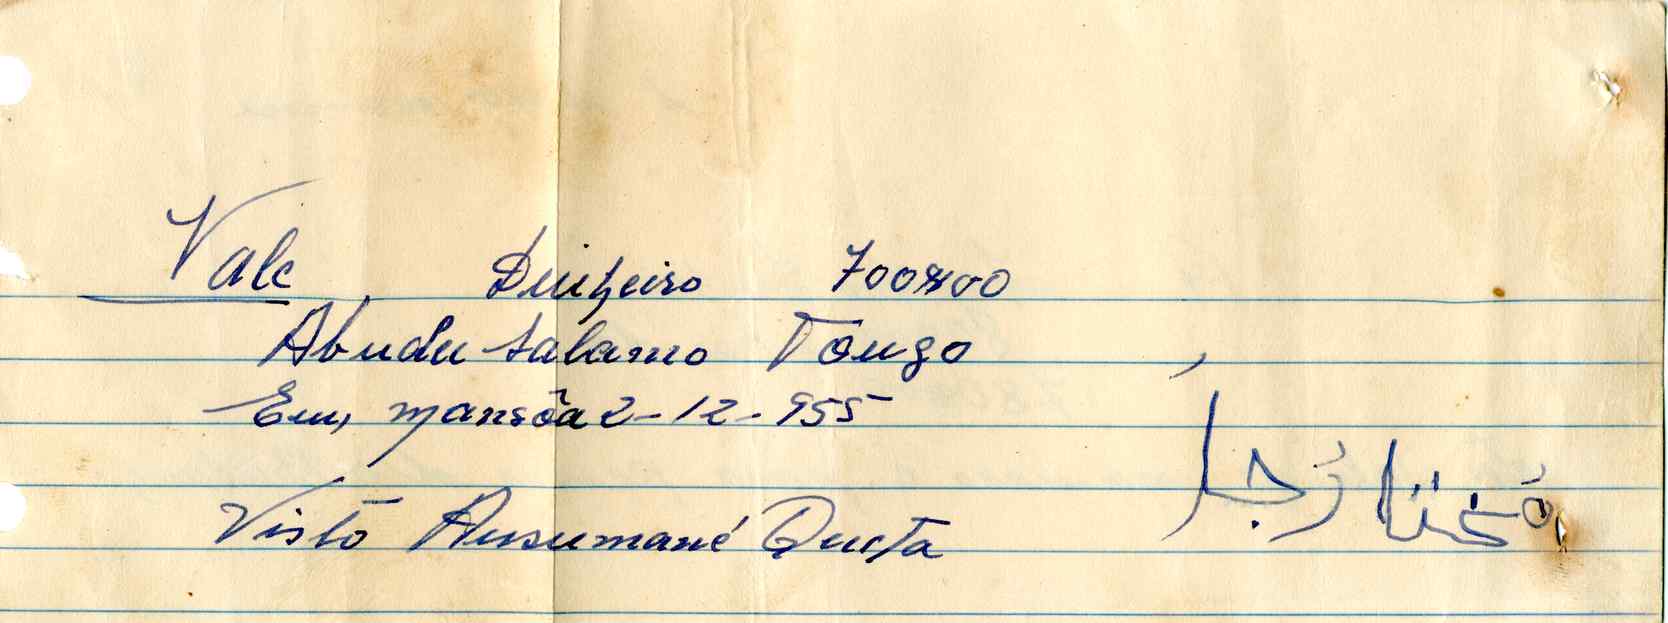 Vale Dinheiro 700$00
Abudu Salamo Tougo
Em, mansõa 2-12-955
Visto Ansumané Queta
مُختَارُ جل